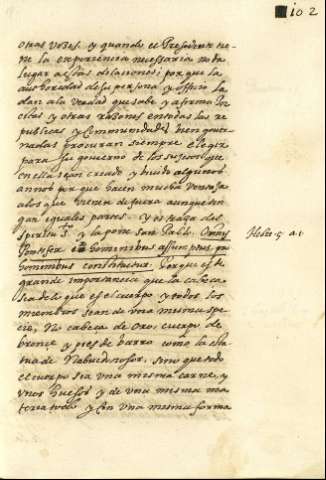 102
otras vezes. y quando el Presidente tie-
ne la experiencia necessaria no da
lugar a estas dilaciones; porque la
authoridad de su persona y officio la
dan a la verdad que sabe y afirma. Por
estas y otras razones en todas las re
publicas y Communidades bien gouer-
nadas procuran siempre elegir
para su gouierno de los sujetos que
en ella se an creado y biuido algunos
annos porque hacen mucha ventaja
a los que vienen de fuera aunque ten
gan eguales partes. y es traça del
spiritu sto y la pone san Pablo. Omnis
Pontifex ex hominibus assumptus, pro
hominibus constituitur. Porque es de
grande importancia que la cabeca
sea de lo que es el cuerpo y todos los
miembros sean de vna misma spe
cie, No cabeca de oro, cuerpo de
bronce y pies de barro como la esta
tua de Nabucdonosor. sino que todo
el cuerpo sea vna misma carne, y
vnos huesos y de vna misma ma
teria todo y con vna mesma forma
Hebr. 5 a. 1.